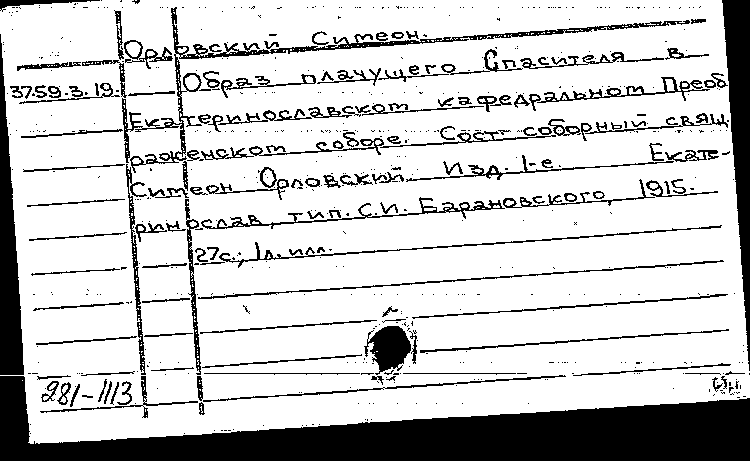 Орловский Симеон.
37.59.3.19. Образ плачущего Спасителя в
Екатеринославском кафедральном Преоб
раженском соборе. Сост. соборный свящ.
Симеон Орловский. Изд. 1-е. Екате-
ринослав, тип. С.И. Барановского, 1915.
27с.; 1л. илл.
281-1113